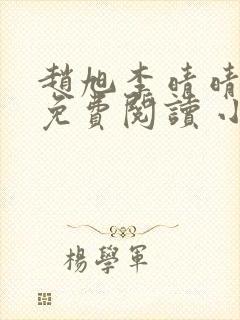 趙旭李晴晴
免費閱讀小
楊學軍